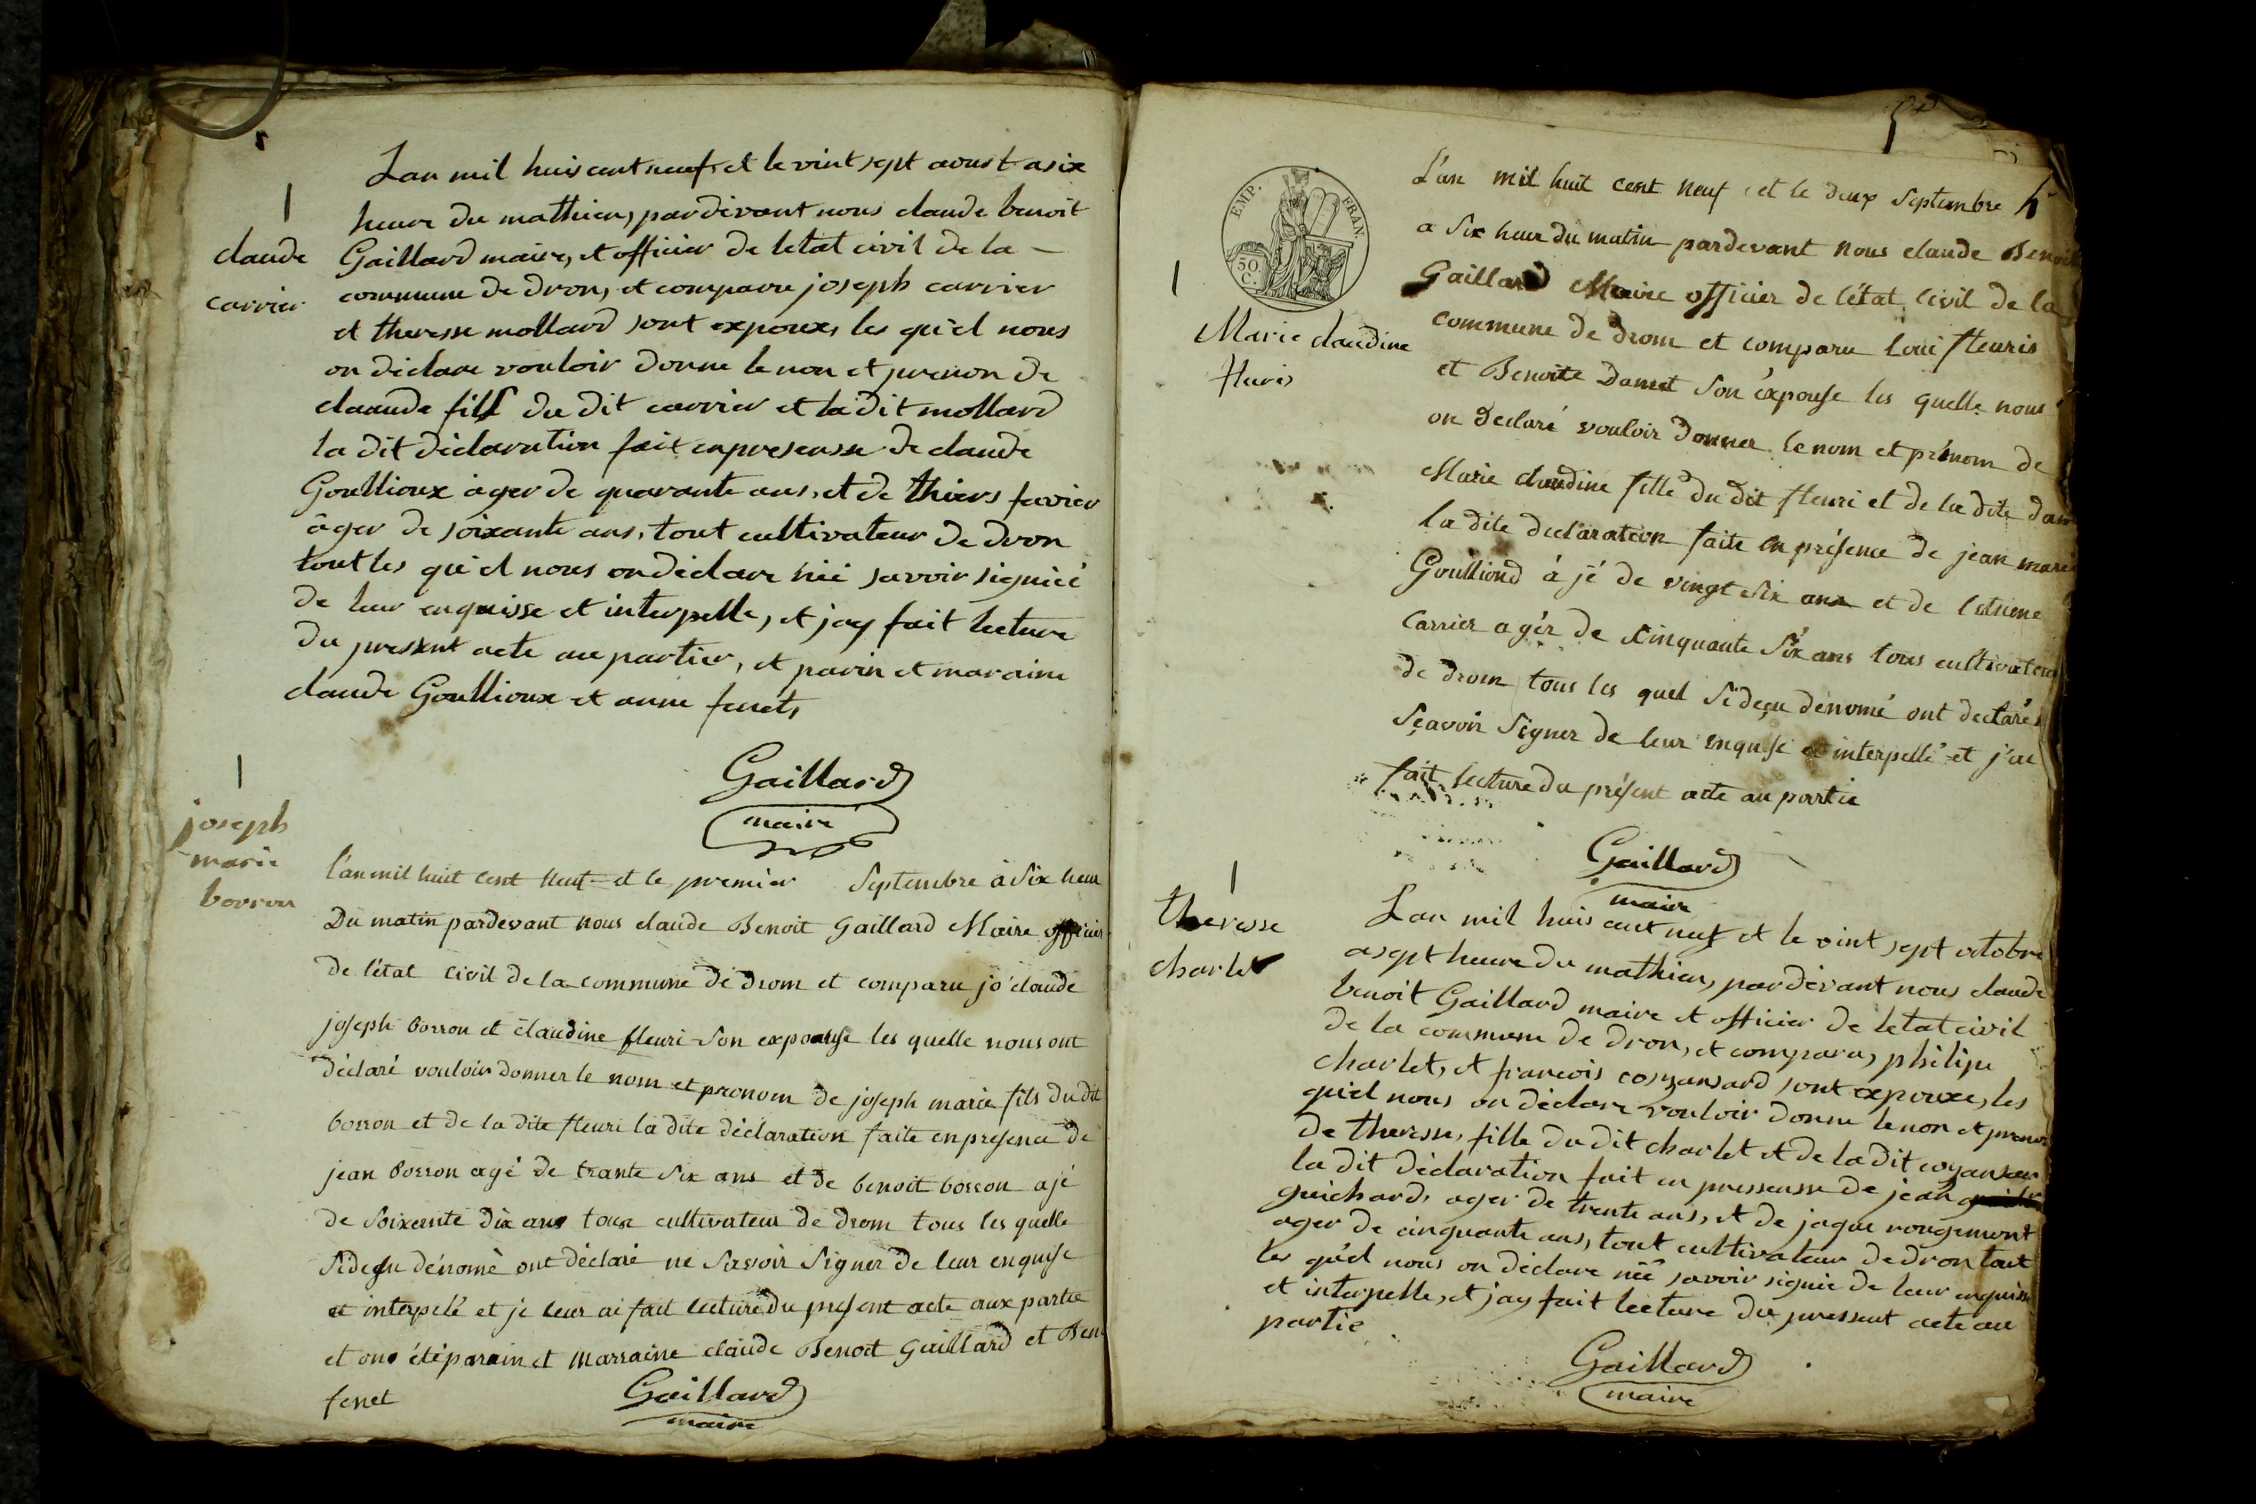 Lan mil huis cent neuf, et le vint sept aoust a six
heure du mathien, pardevant nous claude benoit
claude
carrier
Gaillard maire, et officier de letat civil de la -
commune de dron, et comparu joseph carrier
et theresse mollard sont expouxe, les qu'el nous
on déclare vouloir donne le non et prenon de
claaude fils du dit carrier et la dit mollard
la dit déclaration fait en presensse de claude
Goullioux àger de quarante ans, et de thiers favier
âger de soixante ans, tout cultivateur de dron
tout les qu'el nous on déclare néé savoir signié
de leur enquisse et interpelle, et jay fait lecture
du pressent acte au partier, et parin et maraine
claude Goullioux et anne fenet,
Gaillard
maire
joseph
marie
borron
l'an mil huit cent neuf et le premier Septembre à Six heur
Du matin pardevant nous claude Benoit Gaillard Maire officier
de l'état civil de la commune de drom et comparu jo claude
joseph borron et claudine fleuri son expouse les quelle nous ont
déclaré vouloir donner le nom et pronom de joseph marie fils du dit
borron et de la dite fleuri la dite déclaration faite en presence de
jean borron agé de trante Six ans et de benoit borron ajé
de Soixante dix ans tous cultivateur de drom tous les quelle
Sideçu dénomé ont déclaré ne Sassoir Signer de leur enquise
et interpelé et je leur ai fait lecture du present acte aux partie
et ons été parain et marraine claude Benoit Gaillard et Ben
fenet
Gaillard
maire
EMP. FRAN.
50
C.
L'an mil huit cent neuf et le deux Septembre
a Six heur du matin pardevant nous claude Benoit
Gaillard Maire officier de l'état civil de la
Marie claudine
fleuris
commune de drom et comparu loui fleuris
et Benoite Damet son éxpouse les quelle nous
on déclaré vouloir donner le nom et prénom de
Marie claudine fille du dit fleuri et de la dite dam
la dite déclaration faite en présence de jean marie
Goulliond á jé de vingt six ans et de
carrier agér de Cinquante Six ans tous cultivateur
de drom tous les quel Sideçu dénomé ont declarés
Sçavoir Signer de leur enquise et interpellé et j'ai
fait lecture du présent acte au partie
Gaillard
maire
theresse
charlet
Lan mil huis cent neuf et le vint sept octobre
a sept heure du mathien, pardevant nous claude
benoit Gaillard maire et officier de letat civil
de la commune de dron, et comparu, philipe
charlet, et francois cosyansard sont expouxe, les
qu'el nous on déclare vouloir donne le non et prenon
de theresse, fille du dit charlet et de la dit
la dit déclaration fait en pressensse de jean
guichard, ager de trente ans, et de jaque rougemont
ager de cinquante ans, tout cultivateur de dron tout
les qu'el nous on déclare néé savoir signie de leur enquisse
et interpelle, et jay fait lecture du pressent acte au
partie
Gaillard
maire